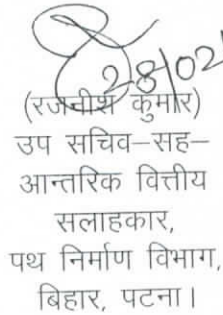 28/02
(रजनीश कुमार)
उप सचिव-सह-
आन्तरिक वित्तीय
सलाहकार,
पथ निर्माण विभाग,
बिहार, पटना।